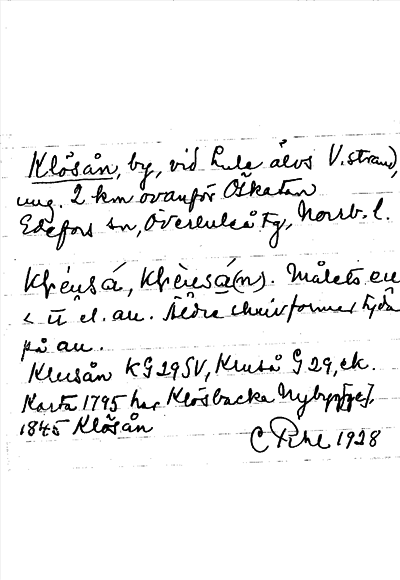 Klösån, by, vid Lule älvs V. strand,
ung. 2 km ovanför Öskatan
Edefors sn, Överluleå tg, Norrb. l.
Målets eu
< ū el. au. Äldre skrivformer tyda
på au.
Klusån KG 29 SV, Kruså G 29, ek.
Karta 1795 har Klösbacka Nybygge,
1845 Klösån
C Pihl 1928